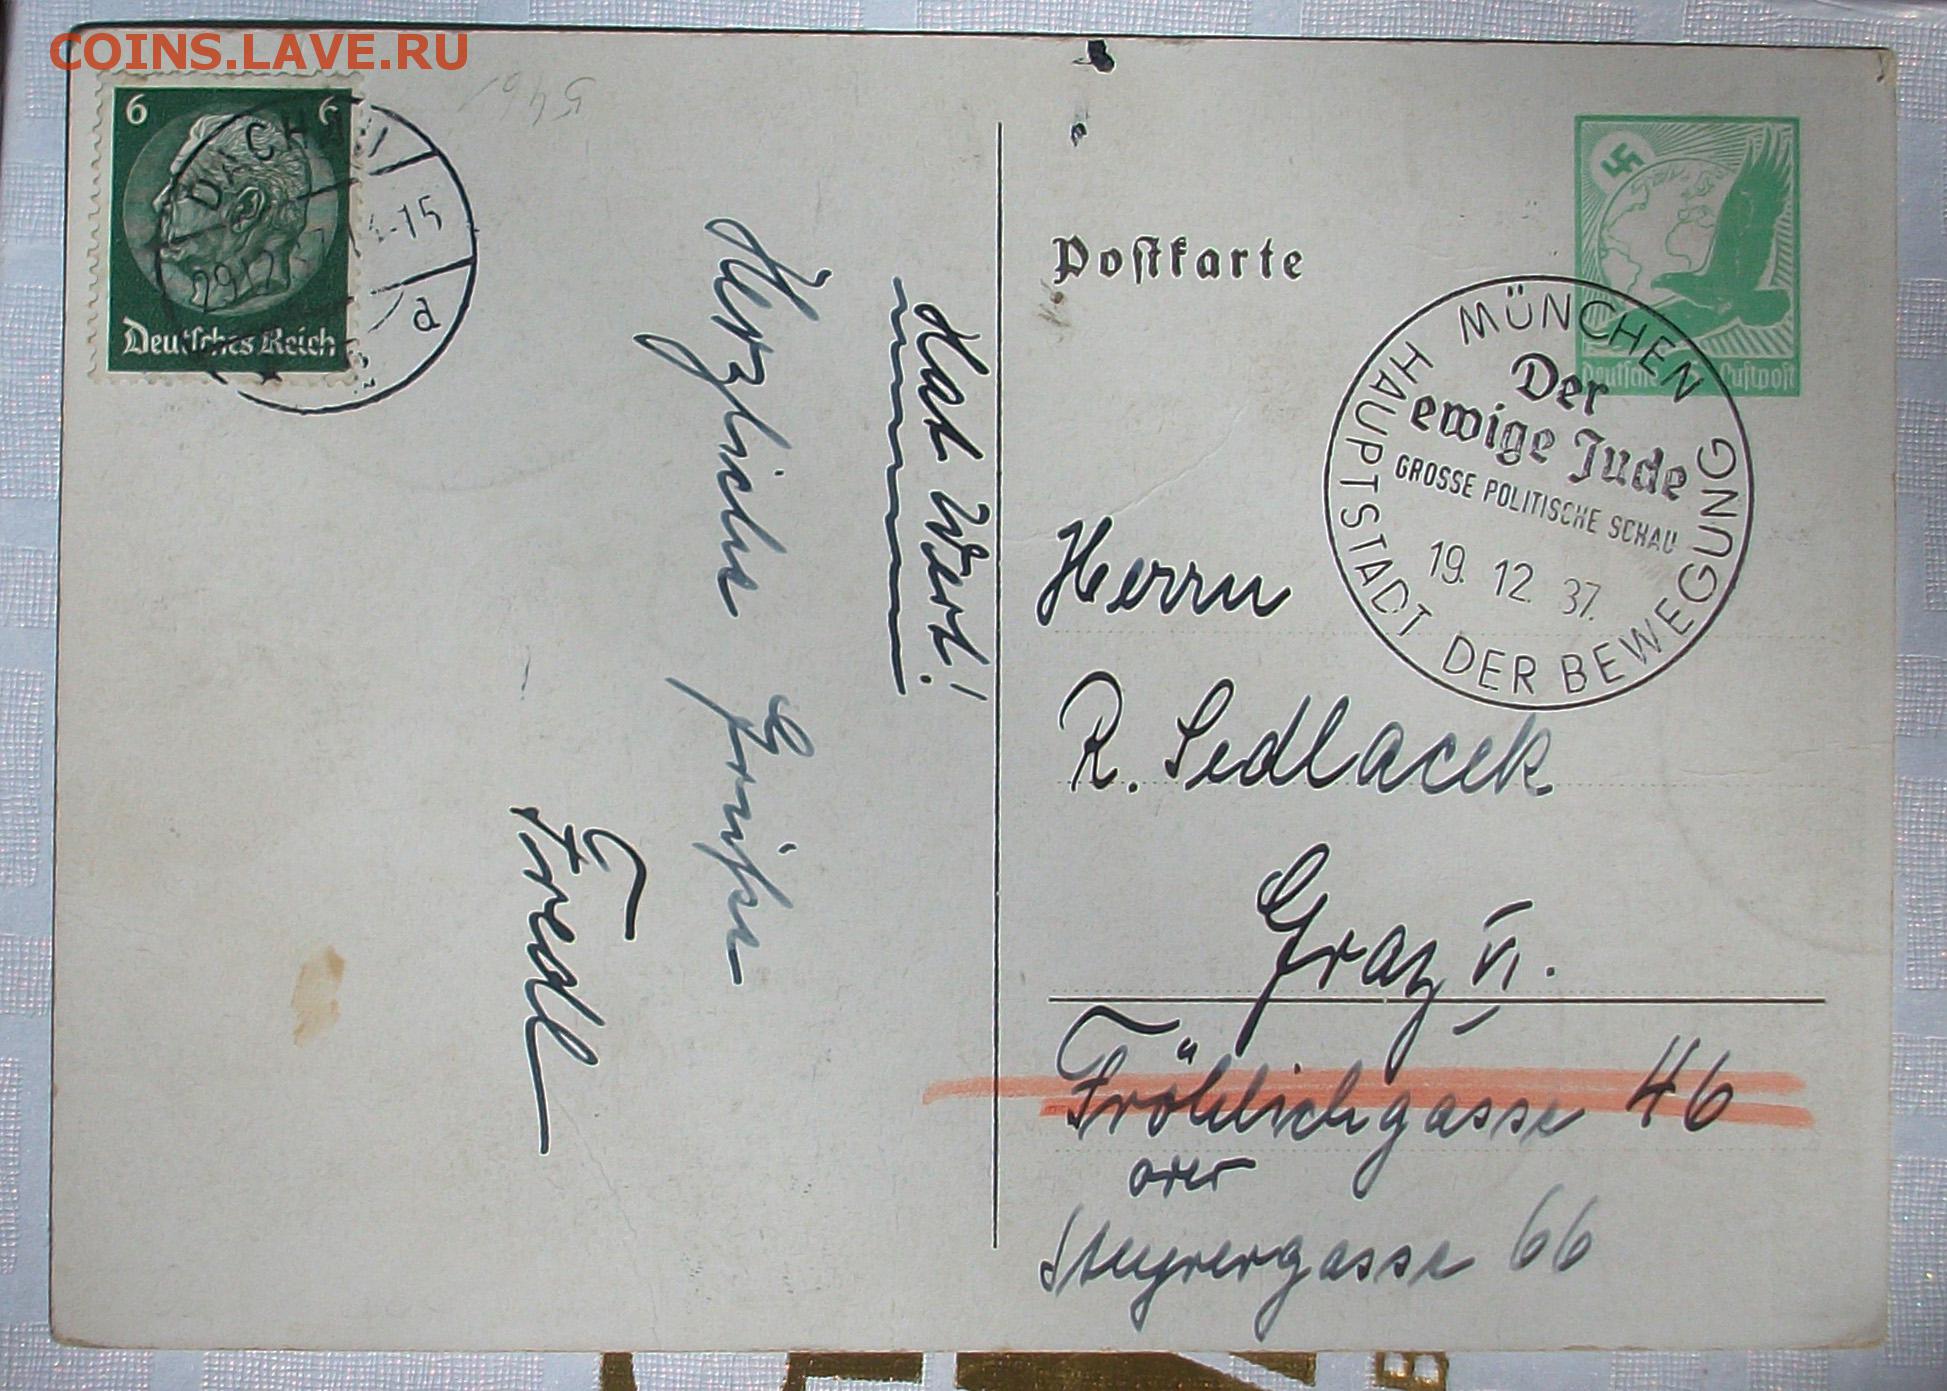 COINS.LAVE.RU
6 6
DACHAU
29.12
-15
d
Deutsches Reich
546
Hat Wert!
Herzliche Grüße
Fredl
Postkarte
Deutsche Luftpost
MÜNCHEN
Der
ewige Jude
GROSSE POLITISCHE SCHAU
19. 12. 37.
HAUPTSTADT DER BEWEGUNG
Herrn
R. Sedlacek
Graz VI.
Fröhlichgasse 46
oder
Steyrergasse 66